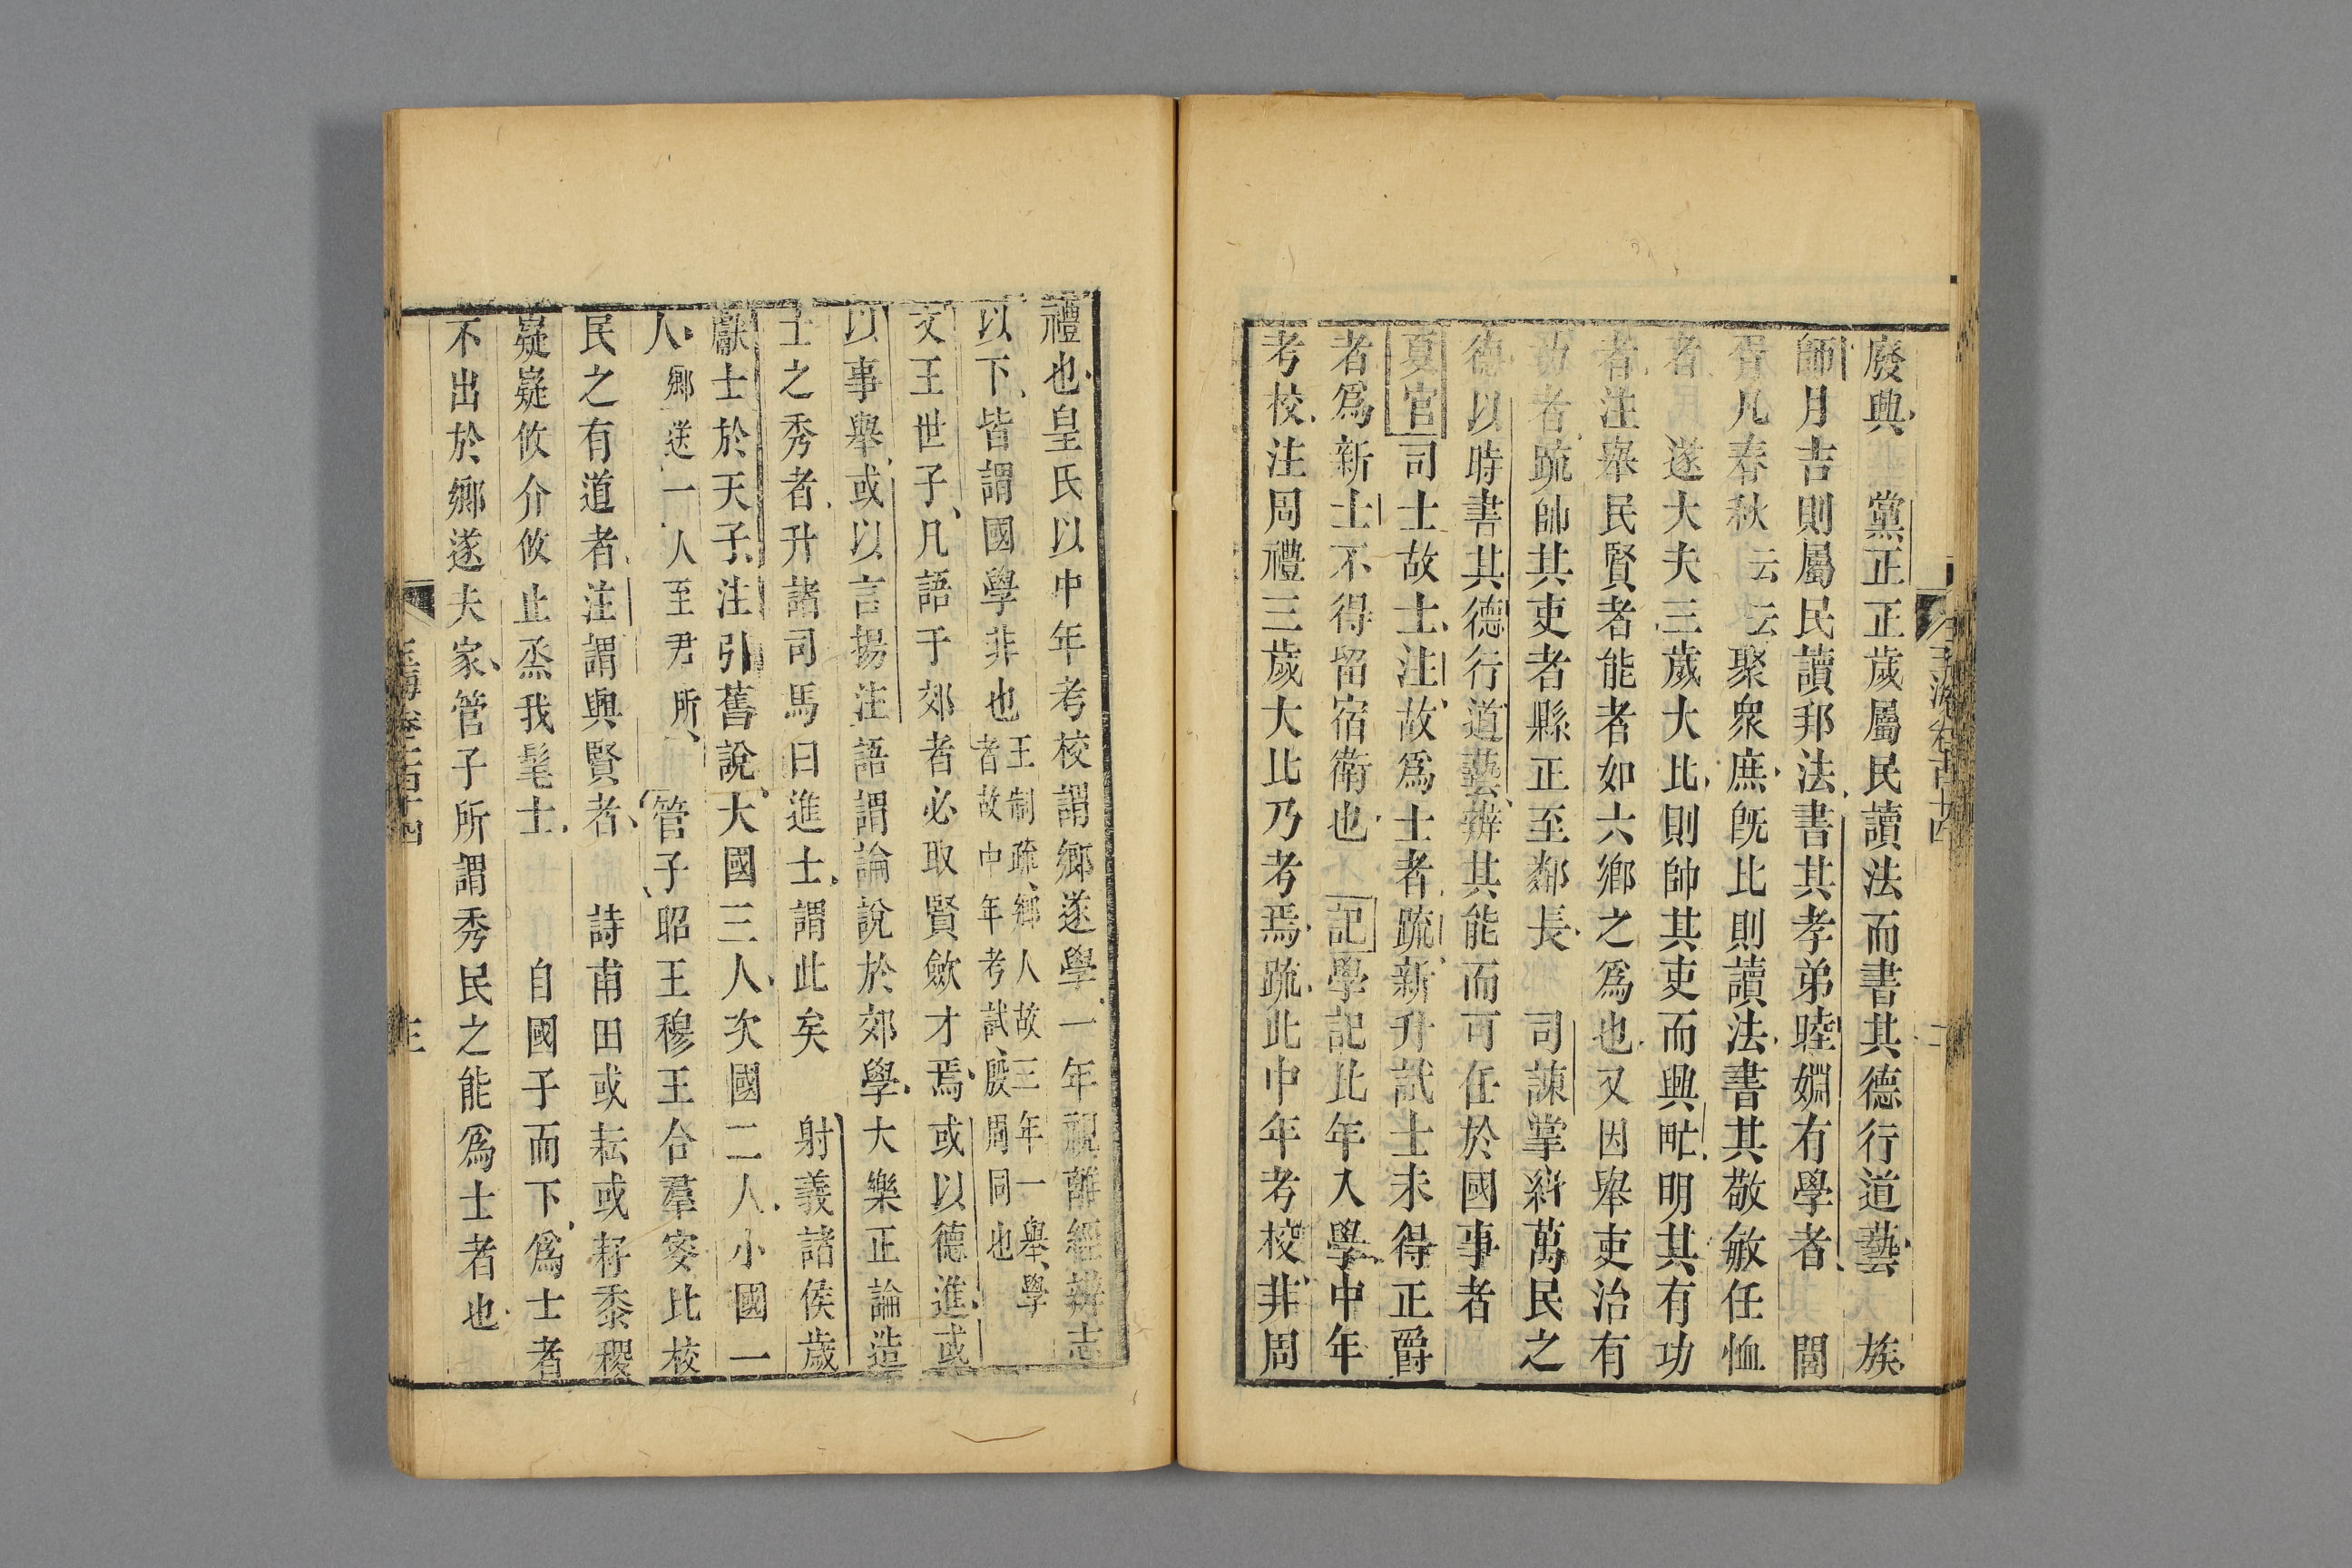 廢興　黨正正歲屬民讀法而書其德行道藝　族
師月吉則屬民讀邦法書其孝弟睦婣有學者　閭
胥凡春秋云云聚衆庶旣比則讀法書其敬敏任恤
者　遂大夫三歲大比則帥其吏而興甿明其有功
者注舉民賢者能者如六鄉之爲也又因舉吏治有
功者疏帥其吏者縣正至鄰長　司諫掌糾萬民之
德以時書其德行道藝辨其能而可任於國事者
夏官司士故士注故爲士者疏新升試士未得正爵
者爲新士不得留宿衛也　記學記比年入學中年
考校注周禮三歲大比乃考焉疏此中年考校非周
禮也皇氏以中年考校謂鄉遂學一年視離經辨志
以下皆謂國學非也王制疏鄉人故三年一舉學
者故中年考試殷周同也
文王世子凡語于郊者必取賢斂才焉或以德進或
以事舉或以言揚注語謂論說於郊學大樂正論造
士之秀者升諸司馬曰進士謂此矣　射義諸侯歲
獻士於天子注引舊說大國三人次國二人小國一
人鄉送一人至君所　管子昭王穆王合羣叟比校
民之有道者注謂興賢者　詩甫田或耘或耔黍稷
嶷嶷攸介攸止烝我髦士　自國子而下爲士者
不出於鄉遂夫家管子所謂秀民之能爲士者也